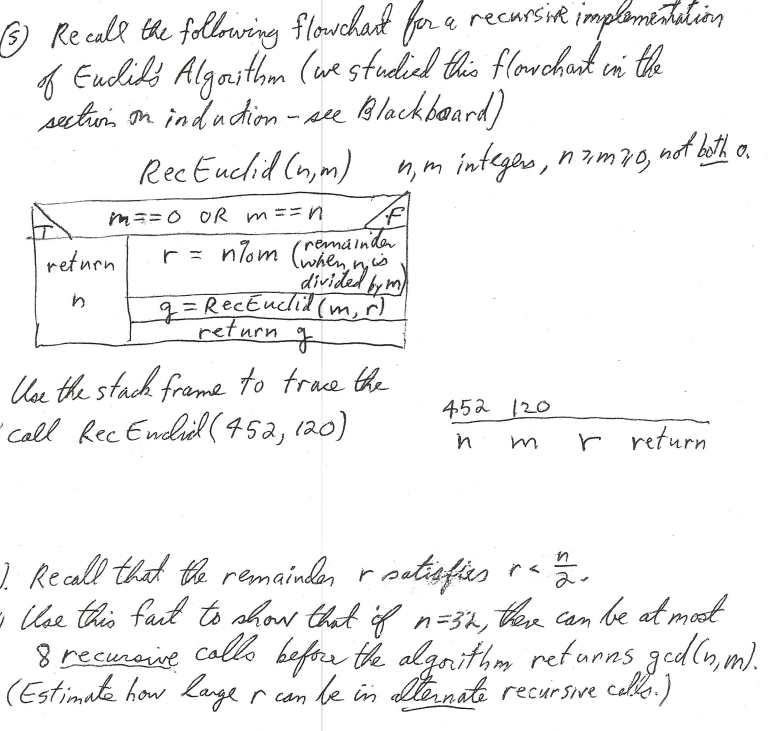 (5) Recall the following flowchart for a recursive implementation
of Euclid's Algorithm (we studied this flowchart in the
section on induction - see Blackboard)
RecEuclid(n,m) n,m integers, n≥m≥0, not both 0.
m==0 OR m==n
T F
return
n
r = n%m (remainder
when n is
divided by m)
g = RecEuclid(m, r)
return g
Use the stack frame to trace the
call RecEuclid(452, 120)
452 120
n m r return
). Recall that the remainder r satisfies r < n/2.
Use this fact to show that if n=32, there can be at most
8 recursive calls before the algorithm returns gcd(n,m).
(Estimate how large r can be in alternate recursive calls.)